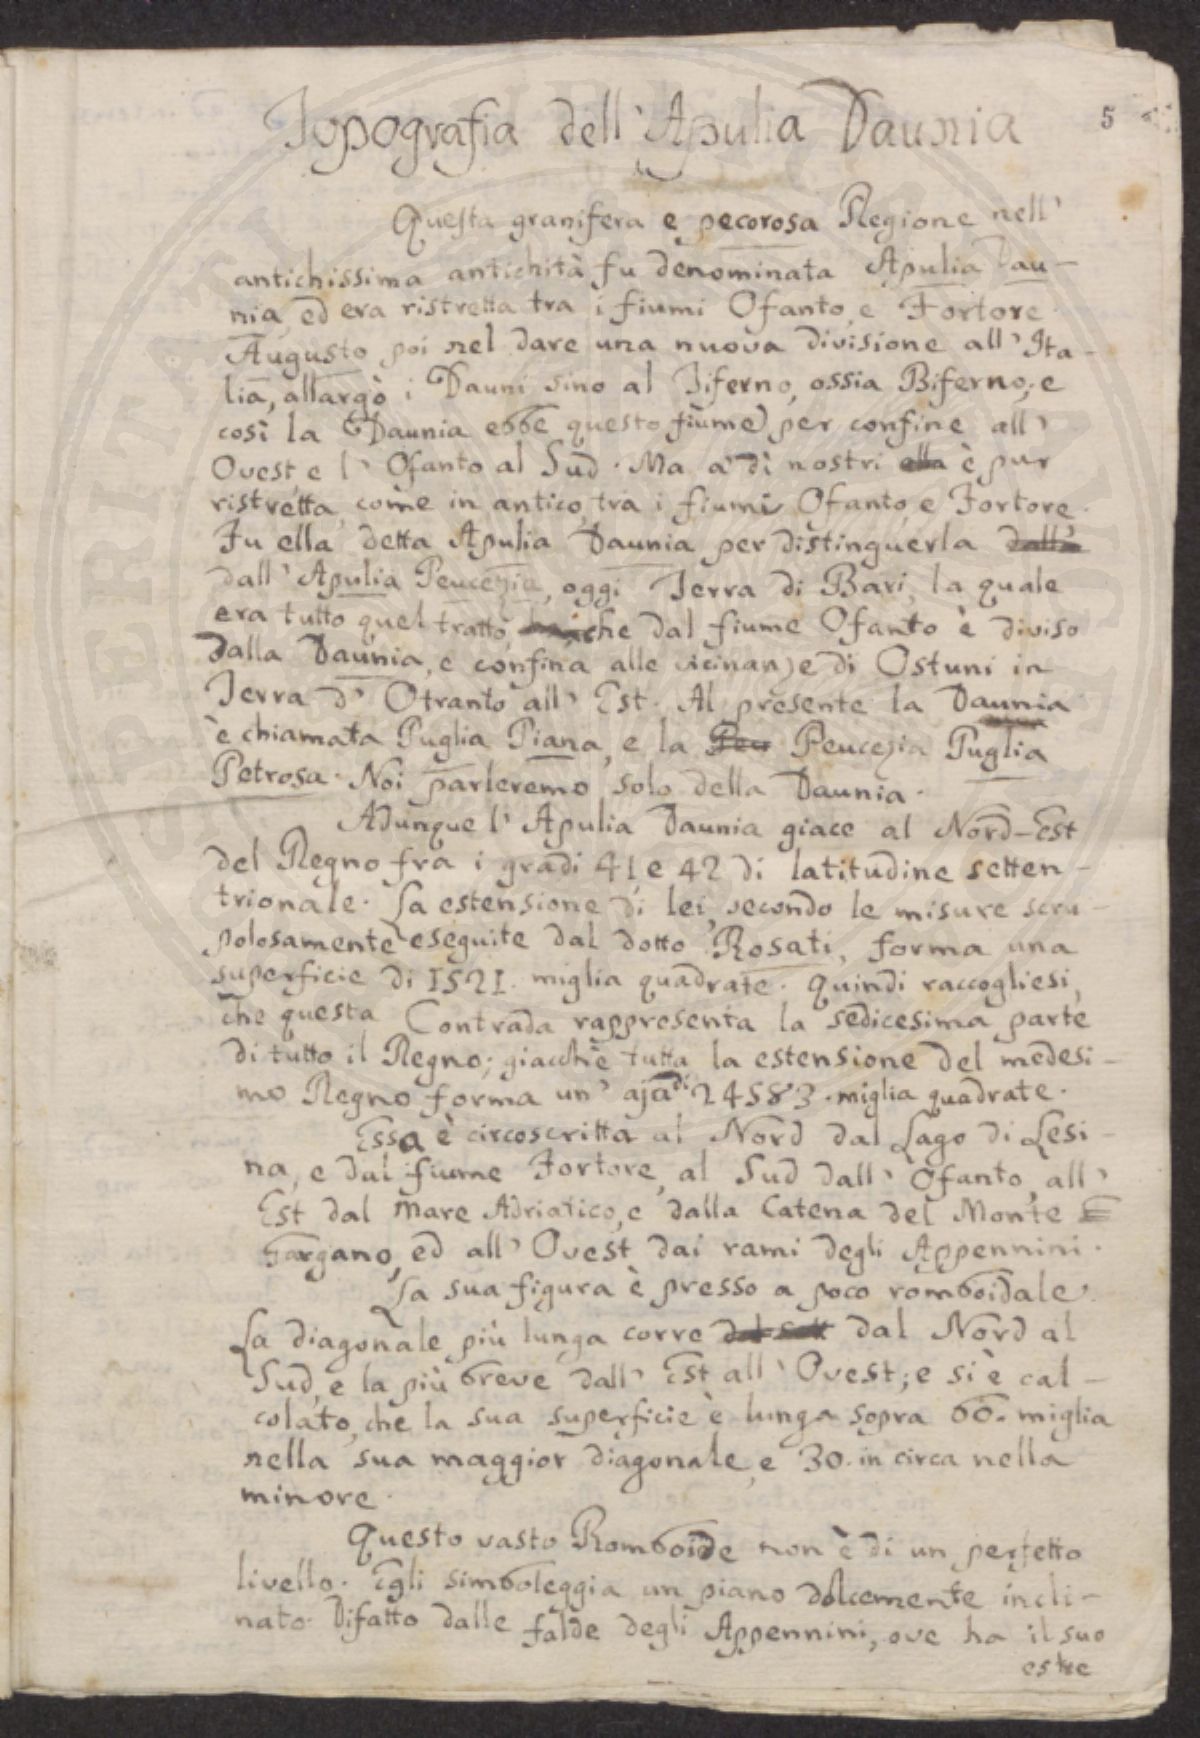 5
Topografia dell' Apulia Daunia
Questa granifera e pecorosa Regione nell'
antichissima antichità fu denominata Apulia Dau-
nia, ed era ristretta tra i fiumi Ofanto, e Fortore
Augusto poi nel dare una nuova divisione all' Ita-
lia, allargò i Dauni sino al Tiferno, ossia Biferno, e
così la Daunia ebbe questo fiume per confine all'
Ovest, e l' Ofanto al Sud. Ma a' dì nostri ella è pur
ristretta, come in antico, tra i fiumi Ofanto, e Fortore.
Fu ella detta Apulia Daunia per distinguerla dalla
dall' Apulia Peucezia, oggi Terra di Bari, la quale
era tutto quel tratto, che dal fiume Ofanto è diviso
dalla Daunia, e confina alle vicinanze di Ostuni in
Terra d' Otranto all' Est. Al presente la Daunia
è chiamata Puglia Piana, e la Peu Peucezia Puglia
Petrosa. Noi parleremo solo della Daunia.
Adunque l' Apulia Daunia giace al Nord-Est
del Regno fra i gradi 41 e 42 di latitudine setten-
trionale. La estensione di lei, secondo le misure scru-
polosamente eseguite dal dotto Rosati, forma una
superficie di 1521. miglia quadrate. Quindi raccogliesi,
che questa Contrada rappresenta la sedicesima parte
di tutto il Regno; giacchè tutta la estensione del medesi-
mo Regno forma un' aja di 24583. miglia quadrate.
Essa è circoscritta al Nord dal Lago di Lesi-
na, e dal fiume Fortore, al Sud dall' Ofanto, all'
Est dal Mare Adriatico, e dalla Catena del Monte
Gargano, ed all' Ovest dai rami degli Appennini.
La sua figura è presso a poco romboidale.
La diagonale più lunga corre dal Sett dal Nord al
Sud, e la più breve dall' Est all' Ovest; e si è cal-
colato, che la sua superficie è lunga sopra 60. miglia
nella sua maggior diagonale, e 30. in circa nella
minore.
Questo vasto Romboide non è di un perfetto
livello. Egli simboleggia un piano dolcemente incli-
nato. Difatto dalle falde degli Appennini, ove ha il suo
estre